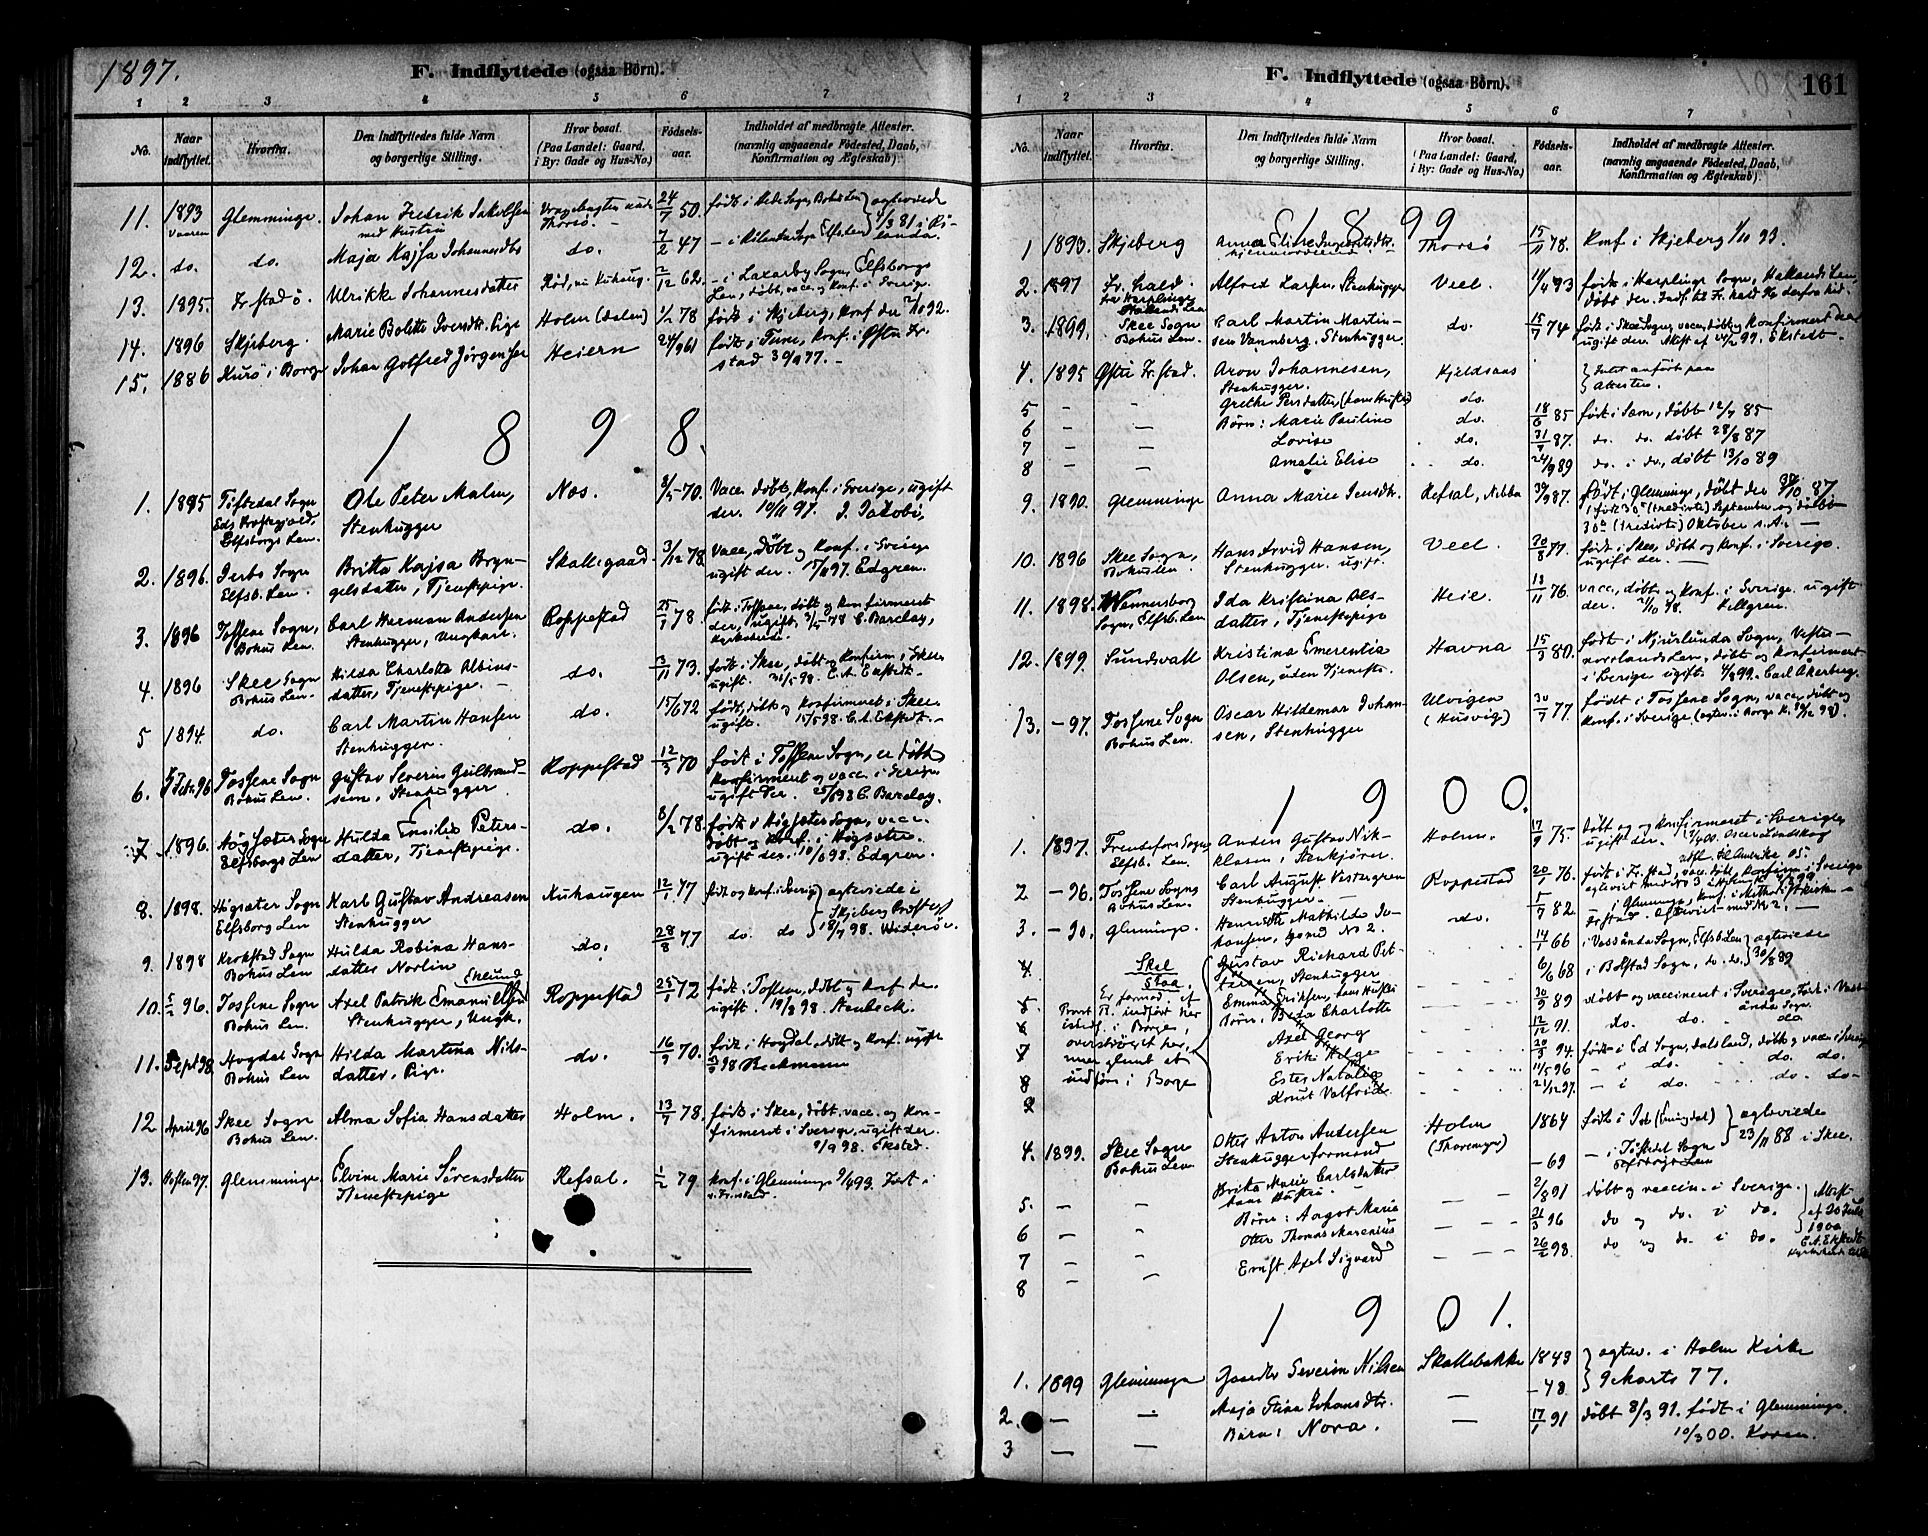 1897.
F. Indflyttede (ogsaa Börn).
1 2 3 4 5 6 7
No. Naar indflyttet. Hvorfra. Den Indflyttedes fulde Navn og borgerlige Stilling. Hvor bosat. (Paa Landet: Gaard, i By: Gade og Hus-No.) Fødselsaar. Indholdet af medbragte Attester. (navnlig angaaende Födested, Daab, Konfirmation og Ægteskab).
11. 1893 Vaaren Glemminge. Johan Fredrik Jakobsen med Hustru Thorsö. 24/7 50.
12. do. do. Maja Kajsa Johannesdtr do. 7/2 47
13. 1895. Fr.stad Ulrikke Johannesdatter Röd, nu Kuhaug. 2/12 62. i Laxarby Sogn, Elfsborgs Len, døbt, vacc. og Konf. i Sverige.
14. 1896 Skjeberg. Marie Bolette Iversdtr. Pige Holm (Dalen) 1/2 78 født i Skjeberg, Konf. der 2/10 92.
15. 1886 Kurö i Borge Johan Gotfred Jörgensen Heiern 24/9 61 født i Tune, Konf. i Østre Fr.stad 30/9 77. -
1 8 9 8.
1. 1895 Tiftedal Sogn Elfsborgs Len. Ole Peter Malm, Stenhugger Næs. 8/5 70. Vacc. døbt, Konf. i Sverige, ugift der. 10/11 97. J. Jakobi,
2. 1896. Jerbo Sogn Elfsb. Len. Britta Kajsa Bryngelsdatter, Tjenestepige. Skallegaard 3/12 78 Vacc., døbt og Konf. i Sverige ugift der. 15/11 97. Edgren.
3. 1896 Tossene Sogn, Bohus Len. Carl Herman Andersen Stenhugger, Ungkarl. Roppestad 25/7 78. født i Tossene, døbt og konfirmeret der, ugift. C. Barclay,
4. 1896 Skee Sogn Bohus Len. Hilda Charlotta Albinsdatter, Tjenestepige. - do. 3/11 73. født i Skee, døbt og konfirm. i Skee ugift. 31/5 98. C. A. Ekstedt. -
5 1894. do. Carl Martin Hansen Stenhugger. do. 15/6 72 født, døbt og konfirmeret i Skee ugift. 15/5 98. C. A. Ekstedt. -
6. Febr. 96 Tossene Sogn Bohus Len. Gustav Severin Gulbrandsen, Stenhugger. Roppestad 12/3 70 født i Tossene Sogn, er døbt konfirmeret og vacc. i Sverige ugift der. 25/6 98 C. Barclay.
7 1896. Högsæter Sogn Elfsborgs Len Hulda Emilie Petersdatter, Tjenestepige. do. 8/2 78. født i Högsæter Sogn, vacc. døbt og Konf. i Högsæter. ugift der. 10/6 98. Edgren.
8. 1898. Högsæter Sogn Elfsborg Len Karl Gustav Andreasen Stenhugger Kuhaugen 12/1 77 født og konf. i Sverig ægteviede i Skjeberg 18/7 98. Widerøe.
9. 1898 Krokstad Sogn Bohus Len Hulda Robina Hansdatter Norlin do. 28/8 77 do. do
10. 96. Tossene Sogn Bohus Len. Axel Patrik Emanuelsen Eklund Stenhugger, Ungk. Roppestad 25/1 72 født i Tossene, døbt og konf. der ugift. 19/8 98. Stenbeck.
11. Sept 98 Hogdal Sogn Bohus Len Hilda Martina Nilsdatter, Pige. do. 16/9 70. født i Hogdal, døbt og Konf. ugift 98 Beckmann
12 April 96 Skee Sogn Bohus Len. Alma Sofia Hansdatter Holm. 13/7 78. født i Skee, døbt vacc. og konfirmeret i Sverige, ugift der. 9/9 98. Ekstedt.
13. Høsten 97. Glemminge Elvine Marie Sørensdatter Tjenestepige Refsal. 1/2 79. Konf. i Glemminge 9/4 93. Født i Fr.stad.
161
F. Indflyttede (ogsaa Börn).
1 2 3 4 5 6 7
No. Naar indflyttet. Hvorfra. Den Indflyttedes fulde Navn og borgerlige Stilling. Hvor bosat. (Paa Landet: Gaard, i By: Gade og Hus-No.) Fødselsaar. Indholdet af medbragte Attester. (navnlig angaaende Födested, Daab, Konfirmation og Ægteskab).
1 8 9 9
1 1893. Skjeberg Anna Elise Thorsö 15/11 78. Konf. i Skjeberg 1/10 93.
2. 1897 Fr.hald. fra Harplinge Hallands Len Alfred Larsen, Stenhugger Veel. 11/4 93 født i Harplinge Sogn, Hallands Len, døbt der. Indf. til Fr.hald derfra hid.
3. 1899. Skee Sogn Bohus Len. Carl Martin Martinsen Vannberg. Stenhugger. do. 15/7 74 født i Skee Sogn, vacc., døbt og konfirmeret ugift der. Attest af 99. Ekstedt.
4. 1895 Østre Fr.stad. Aron Johannesen, Stenhugger. Kjeldsaas Intet anført paa Attesten.
5 - - Grethe Persdatter, (hans Hustru) do.
6 - - Børn: Marie Pauline do. 18/6 85 født i Sæm, døbt 12/7 85
7 - - Lovise do. 31/7 87. do. do. døbt 28/8 87
8 - - Amalie Elise do. 24/9 89 do. i do., døbt 13/10 89
9. 1890. Glemminge Anna Marie Jensdtr. Refsal, Nibba 30/9 87. født i Glemminge, døbt der 30/10 87. (født 30te (tredivte) September og døbt 30te (tredivte) Oktober s. A. -
10. 1896 Skee Sogn, Bohuslen Hans Arvid Hansen, Stenhugger. ugift. Veel. 30/8 77. født i Skee, døbt og konf. i Sverige. ugift der. -
11. 1898. Wennersborg Sogn, Elfsb. Len Ida Kristina Olsdatter, Tjenestepige Heie. 18/11 76. vacc., døbt og konf. i Sverige. ugift der. 21/10 98. Lillgren.
12. 1899. Sundsvall Kristina Emerentia Olsen, uden Tjeneste Havna 15/3 80. født i Njurunda Sogn, Vesternorrlands Len, døbt og konfirmeret i Sverige ugift. 4/8 99. Carl Åkerberg.
13. -97. Tossene Sogn Bohus Len. Oscar Hildemar Johansen, Stenhugger Ulvigen (Husvig) 30/7 77. født i Tossene Sogn, vacc. døbt og konf. i Sverige
1 9 0 0.
1. 1897. Frendefors Sogn Elfsb. Len. Anders Gustav Niklasen, Stenkjører. Holm. 17/9 75. døbt og konfirmeret i Sverige, ugift der. Oscar Lindskog
2 -96. Tossene Sogn Bohus Len. Carl August Vestergren Stenhugger. - Roppestad 20/1 76. født i Fr.stad, vacc. døbt, konf. i Sverige ægteviet med No 3
3. -90. Glemminge. Henriette Mathilde Johansen, gift med No 2. do. 5/7 82. - i Glemminge, konf. i Methodistkirken Fr.stad. Ægteviet med No 2. -
4 Skal staa. Gustav Richard Pettersen, Stenhugger 14/1 66 i Vassända Sogn, Elfsb. Len ægteviede 30/8 89
5. Er formod. af Provst B. indført her istedf. i Borge, overstrøget her, men glemt at indføre i Borge Emma Eriksen, hans Hustru 6/6 68 i Bolstad Sogn, do. do.
6 Børn: Beda Charlotte 30/9 89 døbt og vaccineret i Sverige, Født i Vassända Sogn
7 Axel Georg 12/12 91. do. do. do
8 Erik Helge 20/3 94. født i Ed Sogn, Dalsland, døbt og vacc. i Sverige
9 Ester Natalia 11/5 96 - i do. do. do.
Knut Valfrid 21/12 97. - i do. do. do.
4. 1899. Skee Sogn Bohus Len Otto Anton Andersen Stenhuggerformand Holm (Thorenga) 1864 født i Id (Enningdal) ægteviede 23/11 88 i Skee.
5. - - Brita Marie Carlsdatter hans Hustru. - - -69 - i Töftedal Sogn Elfsborgs Len
6 - - Børn: Aagot Maria - - 2/8 91 døbt og vaccin. i Sverige. Attest af 20 Juli 1900 C. A. Ekstedt
7 - - Otto Thomas Marenius - - 31/3 96 do og do. i do.
8 - - Ernst Axel Sigvard - - 26/2 98. do og do. i do.
1 9 0 1.
1. 1899 Glemminge Gaardbr. Severin Nilsen Skallebakke 1843 ægtev. i Holm Kirke 9 Marts 77.
2. - - Maja Stina Johansdtr. - -48
3 - - Børn: Nora. - 17/1 91 døbt 8/3 91. født i Glemminge. 10/3 00. Koren.